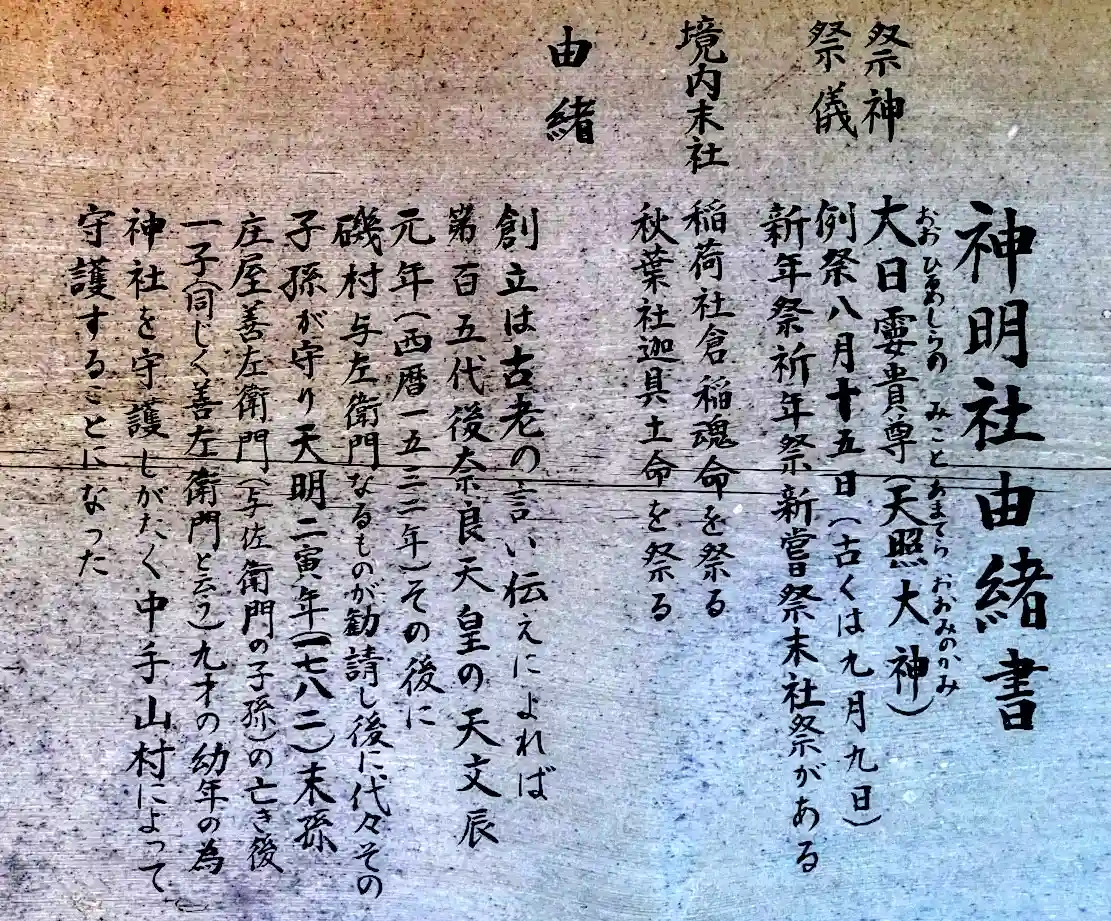 神明社由緒書
祭神 大日孁貴尊(天照大神)
おおひるめむちの みこと あまてらすおおみのかみ
祭儀 例祭八月十五日(古くは九月九日)
新年祭祈年祭新嘗祭末社祭がある
境内末社 稲荷社倉稲魂命を祭る
秋葉社迦具土命を祭る
由緒 創立は古老の言い伝えによれば
第百五代後奈良天皇の天文辰
元年(西暦一五三二年)その後に
磯村与左衛門なるものが勧請し後に代々その
子孫が守り天明二寅年(一七八二)末孫
庄屋善左衛門(与佐衛門の子孫)の亡き後
一子(同じく善左衛門と云う)九才の幼年の為
神社を守護しがたく中手山村によって
守護することになった